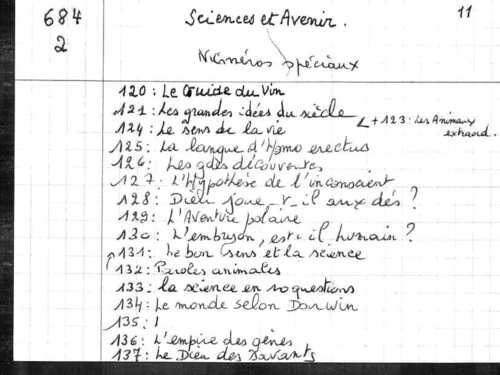 684
2
Sciences et Avenir.
11
Numéros spéciaux
120 : Le Guide Du Vin
121 : Les grandes idées du siècle
+ 123 : Les Animaux extraord.
124 : Le sens de la vie
125 : La langue d'Homo erectus
126 : Les gdes découvertes
127 : L'Hypothèse de l'inconscient
128 : Dieu joue-t-il aux dés ?
129 : L'Aventure polaire
130 : L'embryon, est-il humain ?
131 : Le bon sens et la science
132 : Paroles animales
133 : la science en 10 questions
134 : Le monde selon Darwin
135 : !
136 : L'empire des gènes
137 : Le Dieu des Savants